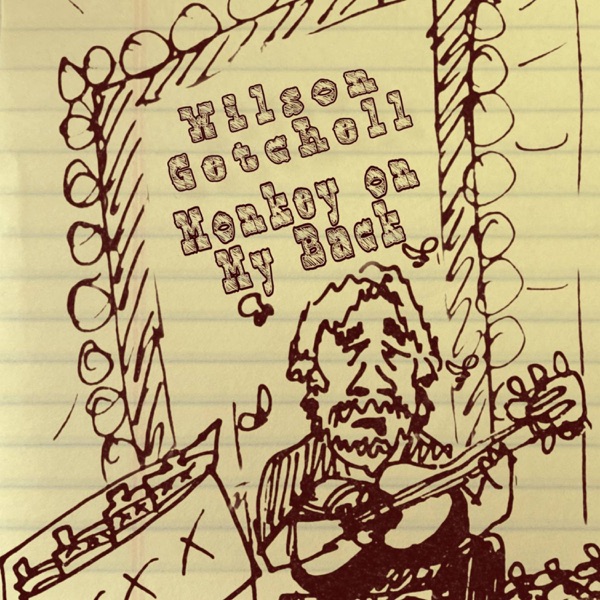 Wilson
Getchell
Monkey on
My Back